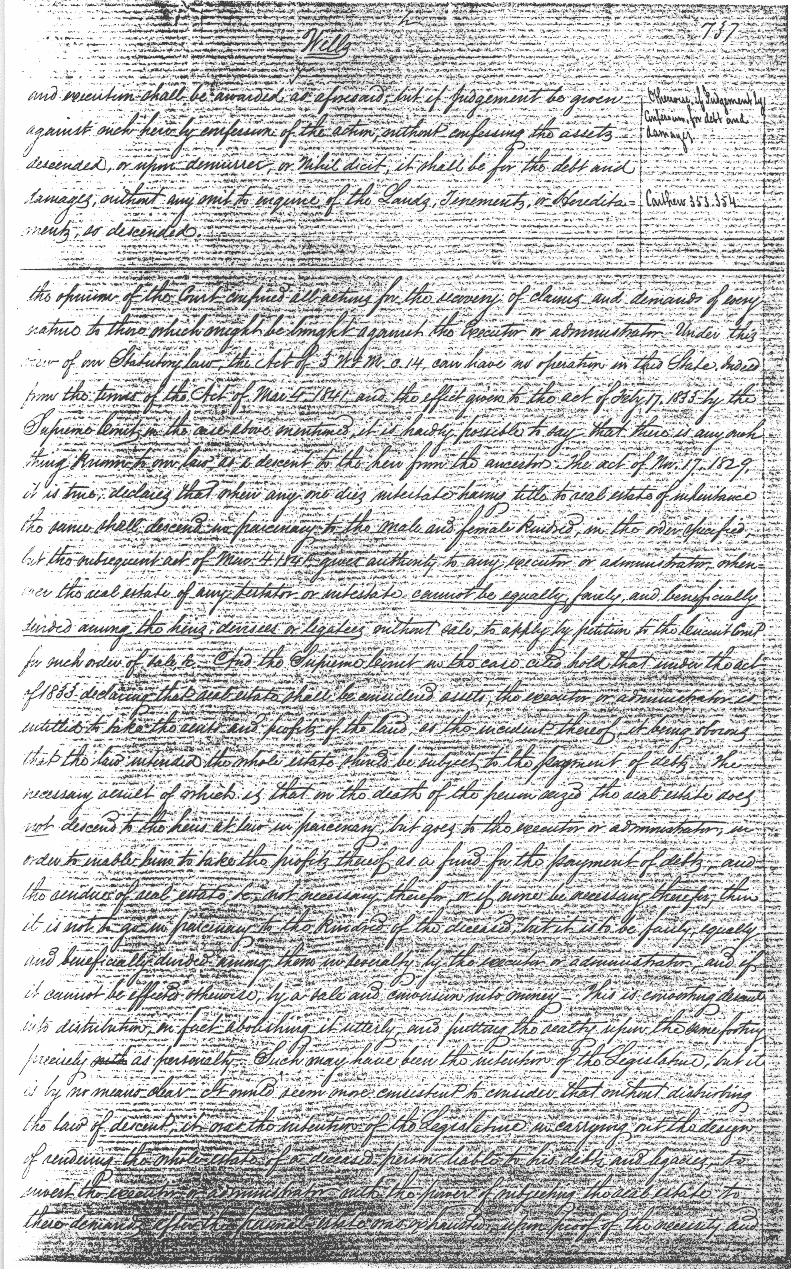 Wills
737
and execution shall be awarded as aforesaid; but if Judgement be given
against such heir by confession of the action, without confessing the assets
descended, or upon demurrer, or Nihil dicit, it shall be for the debt and
damages, without any writ to inquire of the Lands, Tenements, or Heredita=
ments, so descended.
Otherwise, if Judgement by
Confession, for debt and
damages.
Carthew 353. 354
the opinion of the Court confined all actions for the recovery of claims and demands of every
nature to those which might be brought against the executor or administrator. Under this
view of our Statutory law, the Act of 3 W & M. c. 14, can have no operation in this State. Indeed
from the terms of the Act of Mar. 4. 1841, and the effect given to the act of July 17, 1833 by the
Supreme Court in the case above mentioned, it is hardly possible to say that there is any such
thing known to our law, as a descent to the heir from the ancestor. The act of Nov. 17. 1829
it is true, declares that when any one dies intestate having title to real estate of inheritance
the same shall descend in parcenary to the male and female kindred, in the order specified,
but the subsequent act of Mar. 4 1841 gives authority to any executor or administrator, when=
ever the real estate of any testator or intestate cannot be equally, fairly, and beneficially
divided among the heirs devisees or legatees without sale, to apply by petition to the Circuit Court
for such order of sale, &c. And the Supreme Court in the case cited hold that under the act
of 1833 declaring that real estate shall be considered assets, the executor or administrator is
entitled to take the rents and profits of the land as the incident thereof, it being obvious
that the law intended the whole estate should be subject to the payment of debts. The
necessary result of which is, that on the death of the person seized the real estate does
not descend to the heirs at law in parcenary, but goes to the executor or administrator, in
order to enable him to take the profits thereof as a fund for the payment of debts, and
the residue of real estate &c, not necessary therefor, or if none be necessary therefor, then
it is not to go in parcenary to the kindred of the deceased, but it is to be fairly, equally
and beneficially divided among them in severalty by the executor or administrator, and if
it cannot be effected otherwise, by a sale and conversion into money — This is converting descent
into distribution, in fact abolishing it utterly, and putting the realty upon the same footing
precisely as personalty — Such may have been the intention of the Legislature, but it
is by no means clear. It would seem more consistent to consider that without disturbing
the law of descent, it was the intention of the Legislature in carrying out the design
of rendering the whole estate of a deceased person liable to his debts and legacies, to
invest the executor or administrator with the power of subjecting the real estate to
these demands after the personal estate was exhausted, upon proof of the necessity and